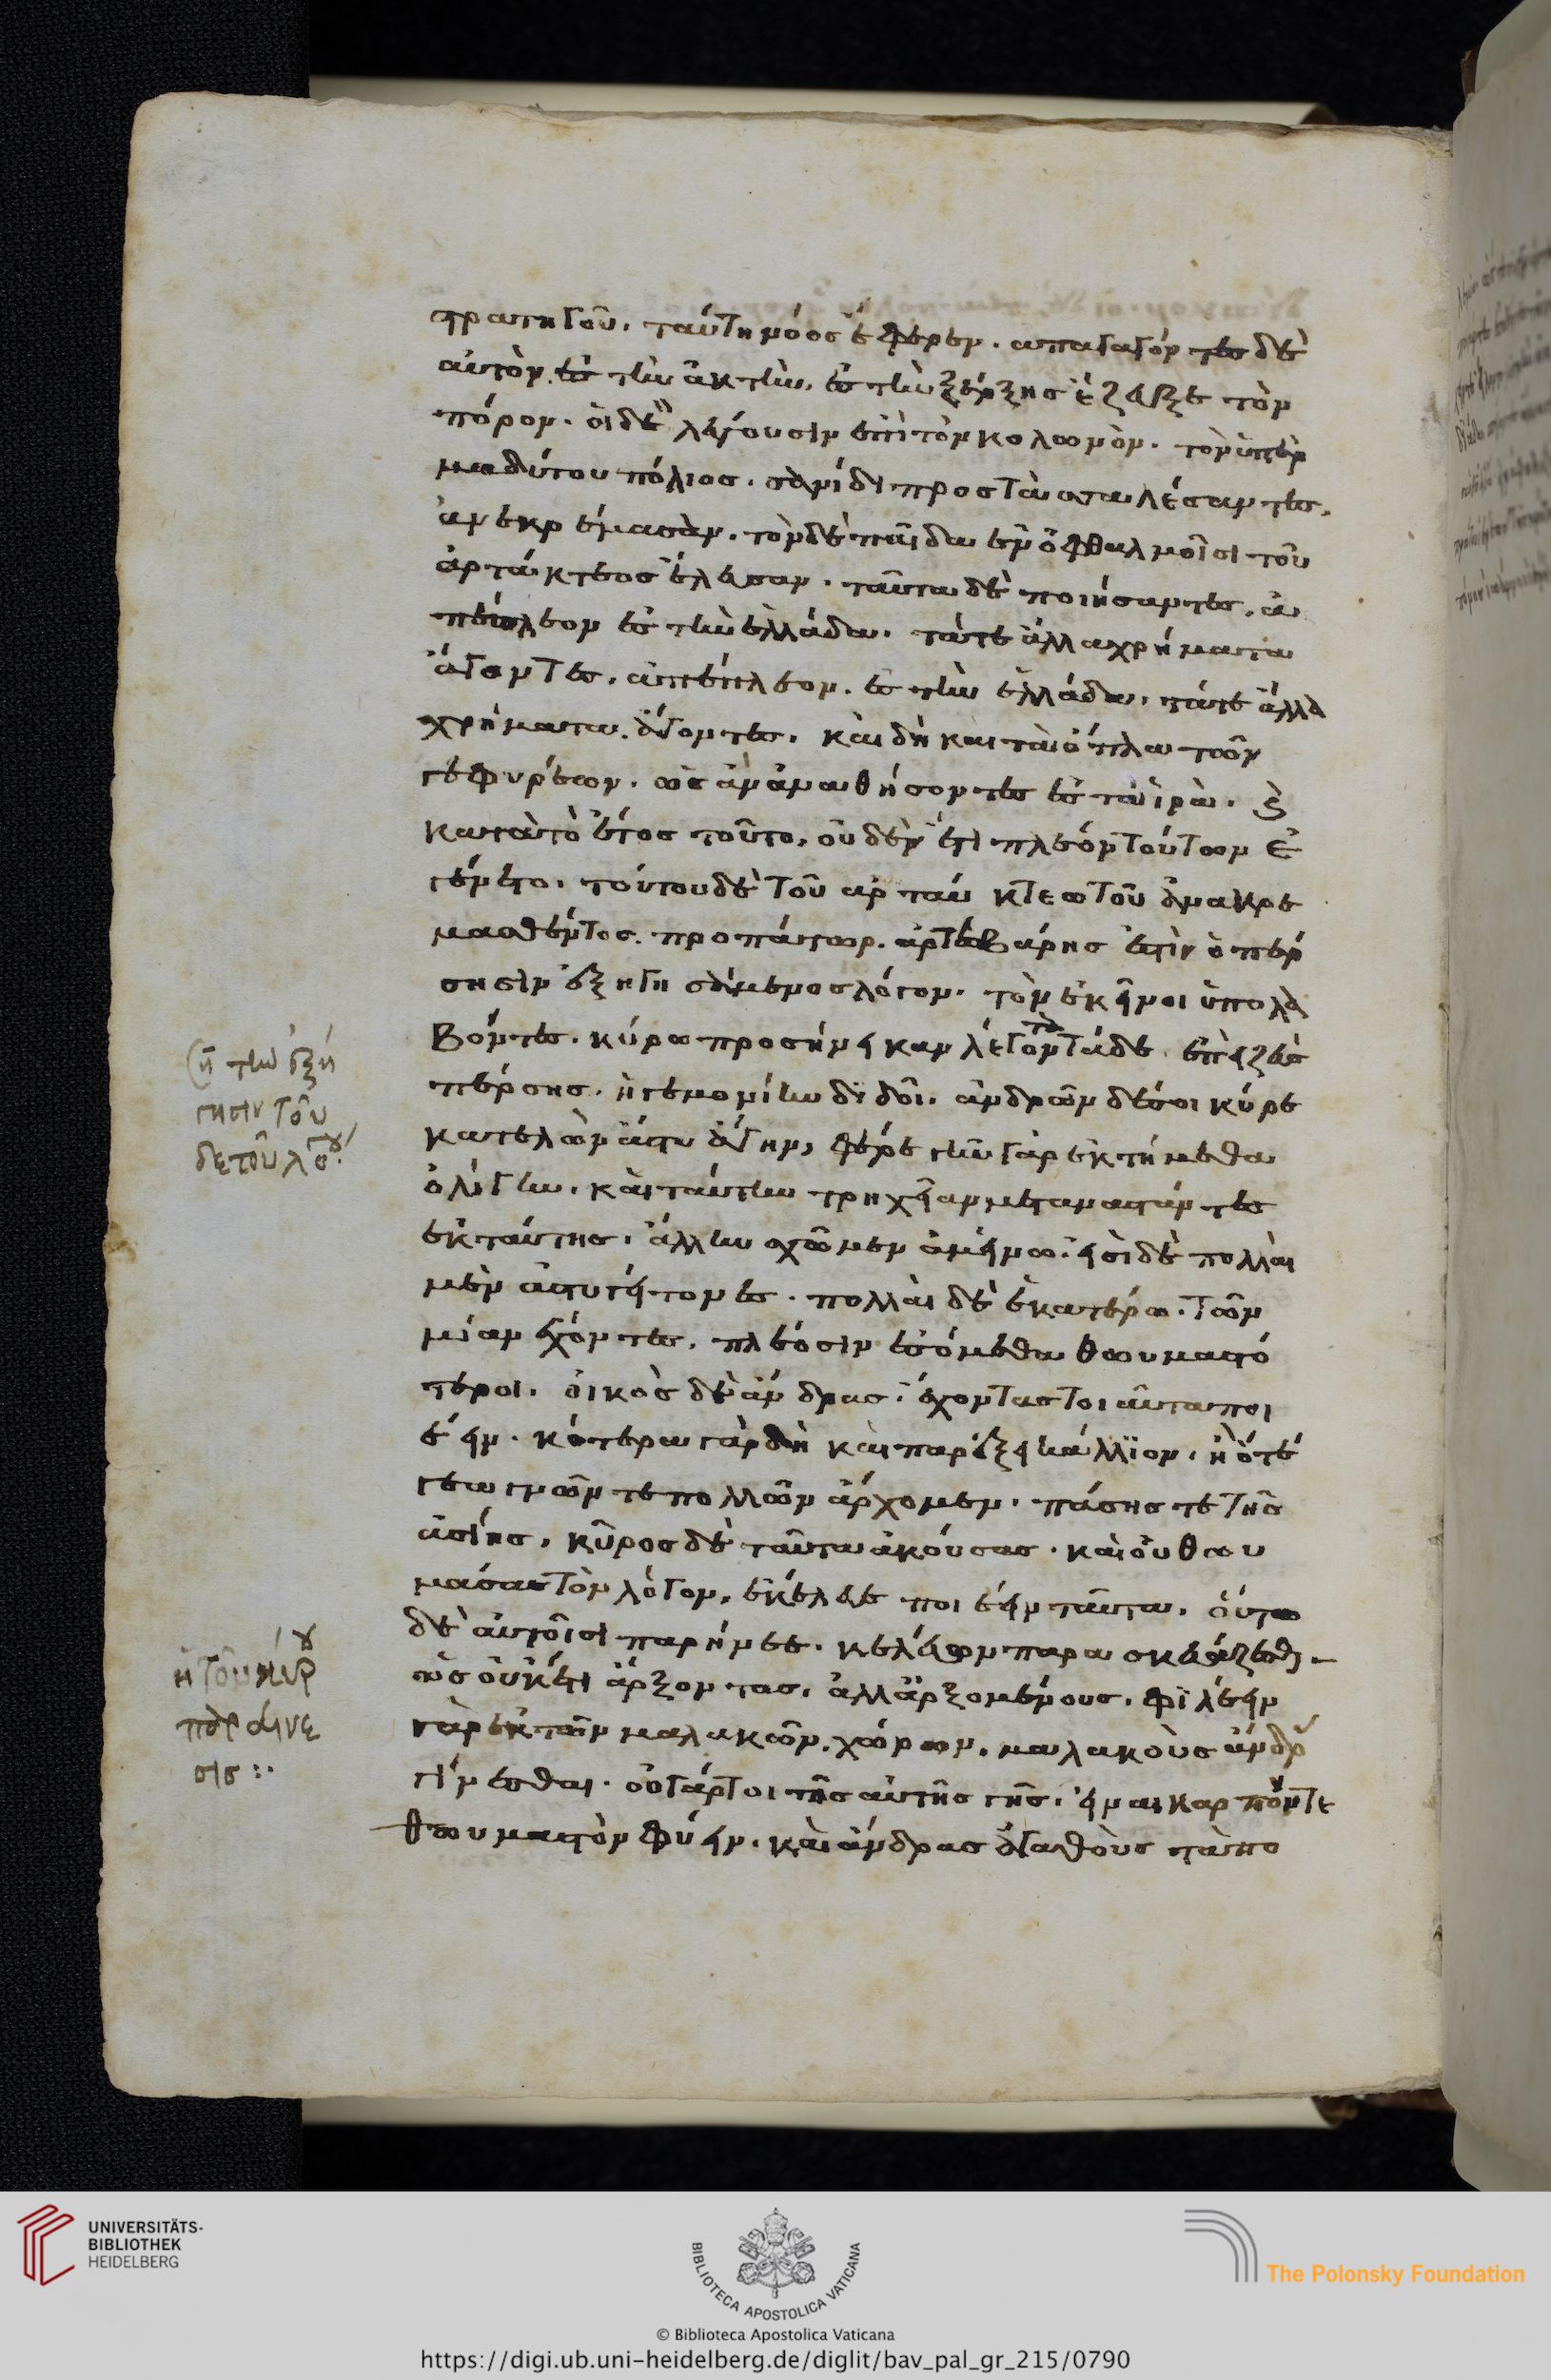 στρατηγοῦ, ταύτη νόος ἔφερεν. ἀπαγαγόντες δὲ
αὐτὸν ἐς τὴν ἀκτὴν, ἐς τὴν ξέρξης ἔζευξε τὸν
πόρον. οἱ δὲ λέγουσιν ἐπὶ τὸν κολωνὸν. τὸν ὑπὲρ
μαδύτου πόλιος. σανίδι προσπασσαλεύσαντες,
ἀνεκρέμασαν. τὸν δὲ παῖδα ἐν ὀφθαλμοῖσι τοῦ
ἀρταύκτεος ἔλευσαν. ταῦτα δὲ ποιήσαντες, ἀ
πέπλεον ἐς τὴν ἑλλάδα. τάτε ἄλλα χρήματα
ἄγοντες, ἀπέπλεον. ἐς τὴν ἑλλάδα, τάτε ἄλλα
χρήματα. ἄγοντες, καὶ δὴ καὶ τὰ ὅπλα τῶν
γεφυρέων. ὡς ἀναθήσοντες ἐς τὰ ἱρὰ. καὶ
κατὰ τὸ ἔτος τοῦτο, οὐδὲν ἔτι πλέον τούτων ἐ
γένετο. τούτου δὲ τοῦ ἀρταύκτεω τοῦ ἀνακρε
μασθέντος. προπάτωρ. ἀρτεμβάρης ἐστὶν ὁ πέρ
σησιν ἐξηγησάμενος λόγον. τὸν ἐκεῖνοι ὑπολα
βόντες. κύρω προσήνεικαν λέγοντα τάδε. ἐπεὶ ζεὺς
πέρσης. ἡγεμονίην διδοῖ. ἀνδρῶν δὲ σοι κύρε
κατελὼν ἀστυάγην, φέρε γῆν γὰρ ἐκτήμεθα
ὀλίγην. καὶ ταύτην τρηχεῖαν μεταναστάντες
ἐκ ταύτης. ἄλλην σχῶμεν ἀμείνω. εἰσὶ δὲ πολλαὶ
μὲν ἀστυγείτονες. πολλαὶ δὲ ἑκατέρω. τῶν
μίαν σχόντες. πλέοσιν ἐσόμεθα θωυμαστό
τεροι. οἰκὸς δὲ ἄνδρας ἄρχοντας τοιαῦτα ποι
έειν. κότερα γὰρ δὴ καὶ παρέξει κάλλιον. ἢ ὅτέ
γε ἀνθρώπων τε πολλῶν ἄρχομεν. πάσης τε τῆς
ἀσίης, κῦρος δὲ ταῦτα ἀκούσας. καὶ οὐ θωυ
μάσας τὸν λόγον, ἐκέλευε ποιέειν ταῦτα. οὕτω
δὲ αὐτοῖσι παρήνεε. κελεύων παρασκευάζεσθαι
ὡς οὐκέτι ἄρξοντας, ἀλλ᾽ ἀρξομένους. φιλέειν
γὰρ ἐκ τῶν μαλακῶν. χώρων. μαλακοὺς ἄνδρας
γίνεσθαι. οὐ γάρ τοι τῆς αὐτῆς γῆς. εἶναι καρπόν τε
θωυμαστὸν φύειν. καὶ ἄνδρας ἀγαθοὺς τὰ πο
ἢ τὴν ἐξή
γησιν τοῦ
δε τοῦ λόγου
ἡ τοῦ κύρου
παραίνε
σις :·
UNIVERSITÄTS-
BIBLIOTHEK
HEIDELBERG
BIBLIOTECA APOSTOLICA VATICANA
© Biblioteca Apostolica Vaticana
The Polonsky Foundation
https://digi.ub.uni-heidelberg.de/diglit/bav_pal_gr_215/0790